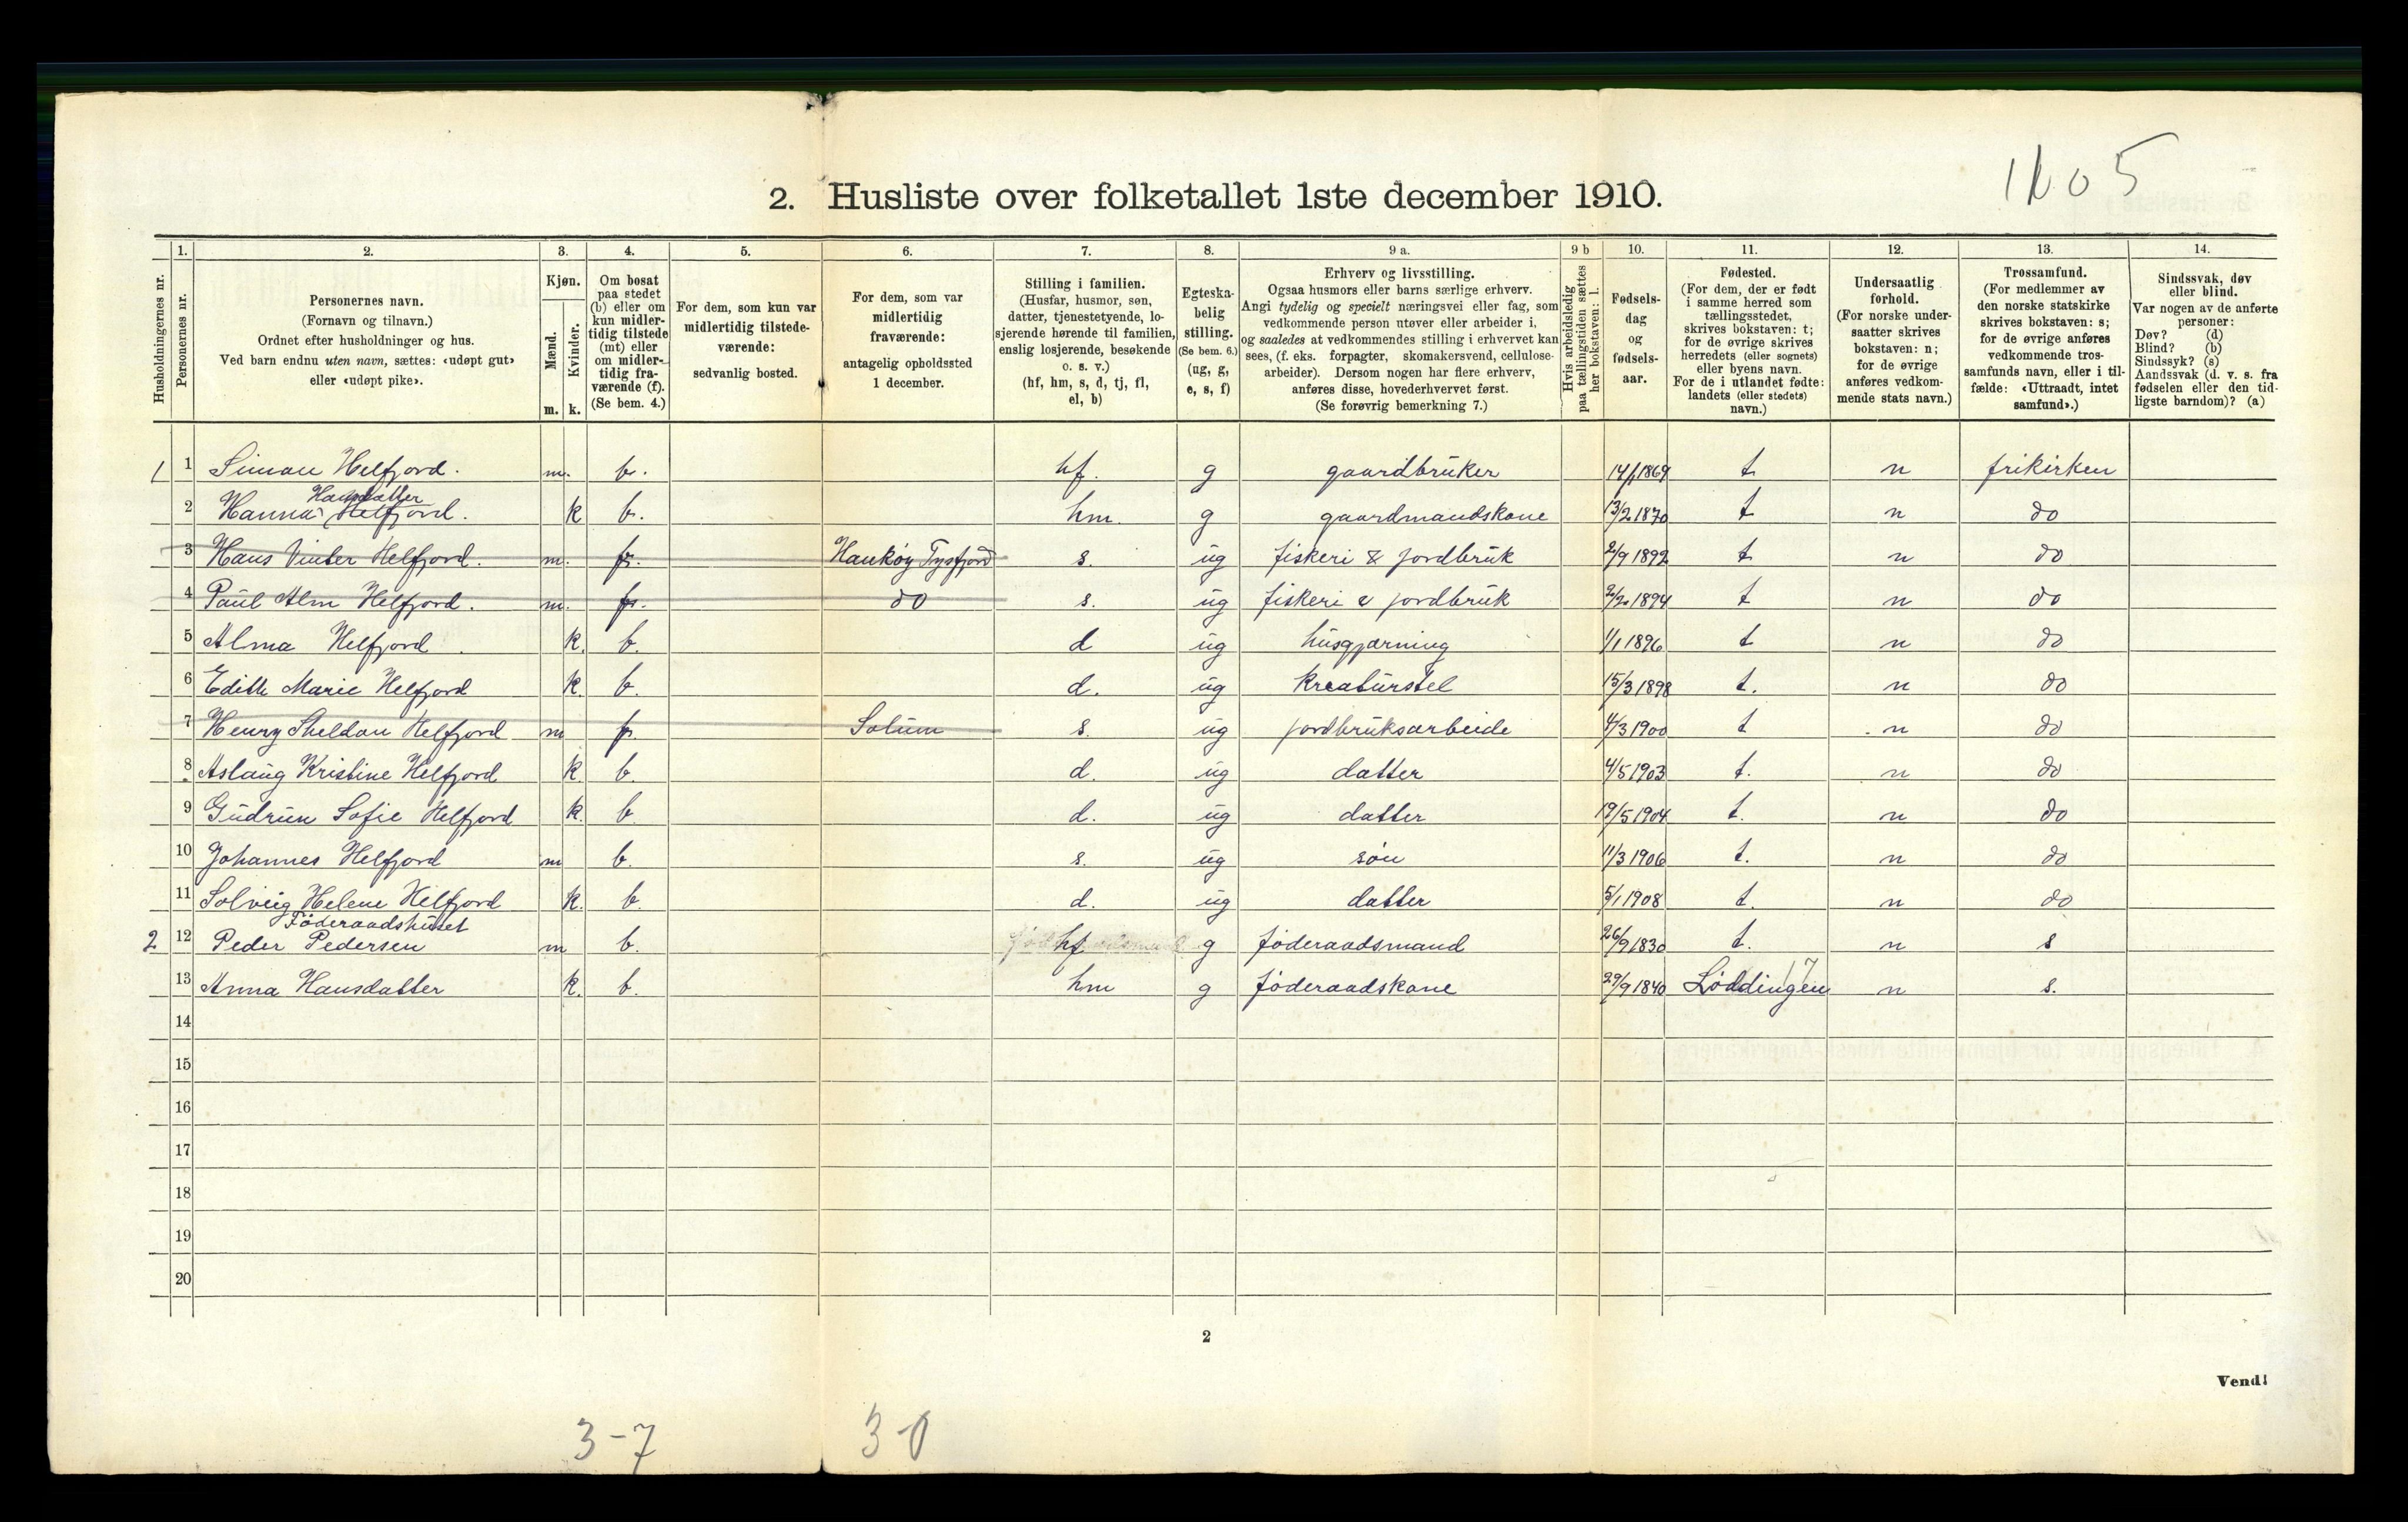 1 1 0 5
2. Husliste over folketallet 1ste december 1910.
1. 2. 3. 4. 5. 6. 7. 8. 9 a. 9 b 10. 11. 12. 13. 14.
Husholdningernes nr.
Personernes nr.
Personernes navn.
(Fornavn og tilnavn.)
Ordnet efter husholdninger og hus.
Ved barn endnu uten navn, sættes: «udøpt gut»
eller «udøpt pike».
Kjøn.
Mænd.
Kvinder.
m. k.
Om bosat
paa stedet
(b) eller om
kun midler-
tidig tilstede
(mt) eller
om midler-
tidig fra-
værende (f).
(Se bem. 4.)
For dem, som kun var
midlertidig tilstede-
værende:
sedvanlig bosted.
For dem, som var
midlertidig
fraværende:
antagelig opholdssted
1 december.
Stilling i familien.
(Husfar, husmor, søn,
datter, tjenestetyende, lo-
sjerende hørende til familien,
enslig losjerende, besøkende
o. s. v.)
(hf, hm, s, d, tj, fl,
el, b)
Egteska-
belig
stilling.
(Se bem. 6.)
(ug, g,
e, s, f)
Erhverv og livsstilling.
Ogsaa husmors eller barns særlige erhverv.
Angi tydelig og specielt næringsvei eller fag, som
vedkommende person utøver eller arbeider i,
og saaledes at vedkommendes stilling i erhvervet kan
sees, (f. eks. forpagter, skomakersvend, cellulose-
arbeider). Dersom nogen har flere erhverv,
anføres disse, hovederhvervet først.
(Se forøvrig bemerkning 7.)
Hvis arbeidsledig
paa tællingstiden sættes
her bokstaven: l.
Fødsels-
dag
og
fødsels-
aar.
Fødested.
(For dem, der er født
i samme herred som
tællingsstedet,
skrives bokstaven: t;
for de øvrige skrives
herredets (eller sognets)
eller byens navn.
For de i utlandet fødte:
landets (eller stedets)
navn.)
Undersaatlig
forhold.
(For norske under-
saatter skrives
bokstaven: n;
for de øvrige
anføres vedkom-
mende stats navn.)
Trossamfund.
(For medlemmer av
den norske statskirke
skrives bokstaven: s;
for de øvrige anføres
vedkommende tros-
samfunds navn, eller i til-
fælde: «Uttraadt, intet
samfund».)
Sindssvak, døv
eller blind.
Var nogen av de anførte
personer:
Døv? (d)
Blind? (b)
Sindssyk? (s)
Aandssvak (d. v. s. fra
fødselen eller den tid-
ligste barndom)? (a)
1 1 Simon Helfjord. m. b. hf. g gaardbruker 14/1 1869 t n frikirken
Hansdatter
2 Hanna Helfjord. k b. hm. g gaardmandskone 13/2 1870 t n do
3 Hans Vinter Helfjord. m. fr. Haukøy Tysfjord s. ug fiskeri & jordbruk 2/9 1892 t n do
4 Paul Alm Helfjord. m. fr. do s. ug fiskeri & jordbruk 2/2 1894 t n do
5 Alma Helfjord k. b. d ug husgjærning 1/1 1896 t n do
6 Edith Marie Helfjord k. b. d. ug kreaturstel 15/3 1898 t. n do
7 Henry Sheldon Helfjord m fr Solum s. ug jordbruksarbeide 4/3 1900 t n do
8 Aslaug Kristine Helfjord k. b. d. ug datter 4/5 1903 t. n do
9 Gudrun Sofie Helfjord k. b d. ug datter 19/5 1904 t. n do
10 Johannes Helfjord m b. s. ug søn 11/3 1906 t. n do
11 Solveig Helene Helfjord k. b. d. ug datter 5/1 1908 t. n do
Föderaadshuset
2 12 Peder Pedersen m b. hf g föderaadsmand 26/9 1830 t. n s
17
13 Anna Hansdatter k. b. hm g föderaadskone 29/9 1840 Løddingen n s.
14
15
16
17
18
19
20
2
Vend!
3-7 3-0